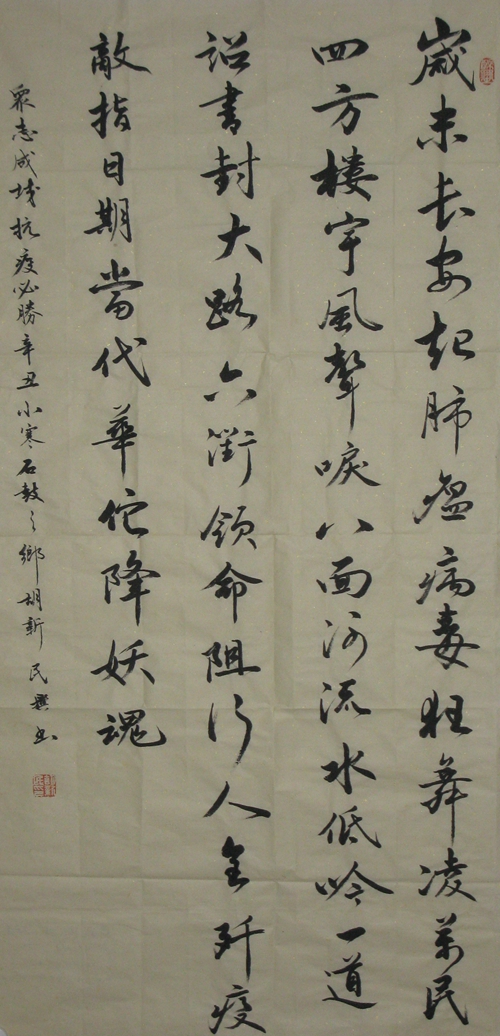 歲末長安起肺瘟病毒狂舞凌萬民
四方樓宇風聲唳八面河流水低吟一道
詔書封大路六街領命阻行人全歼疫
敵指日期當代華佗降妖魂
眾志成城抗疫必勝辛丑小寒石鼓之鄉胡新民撰書